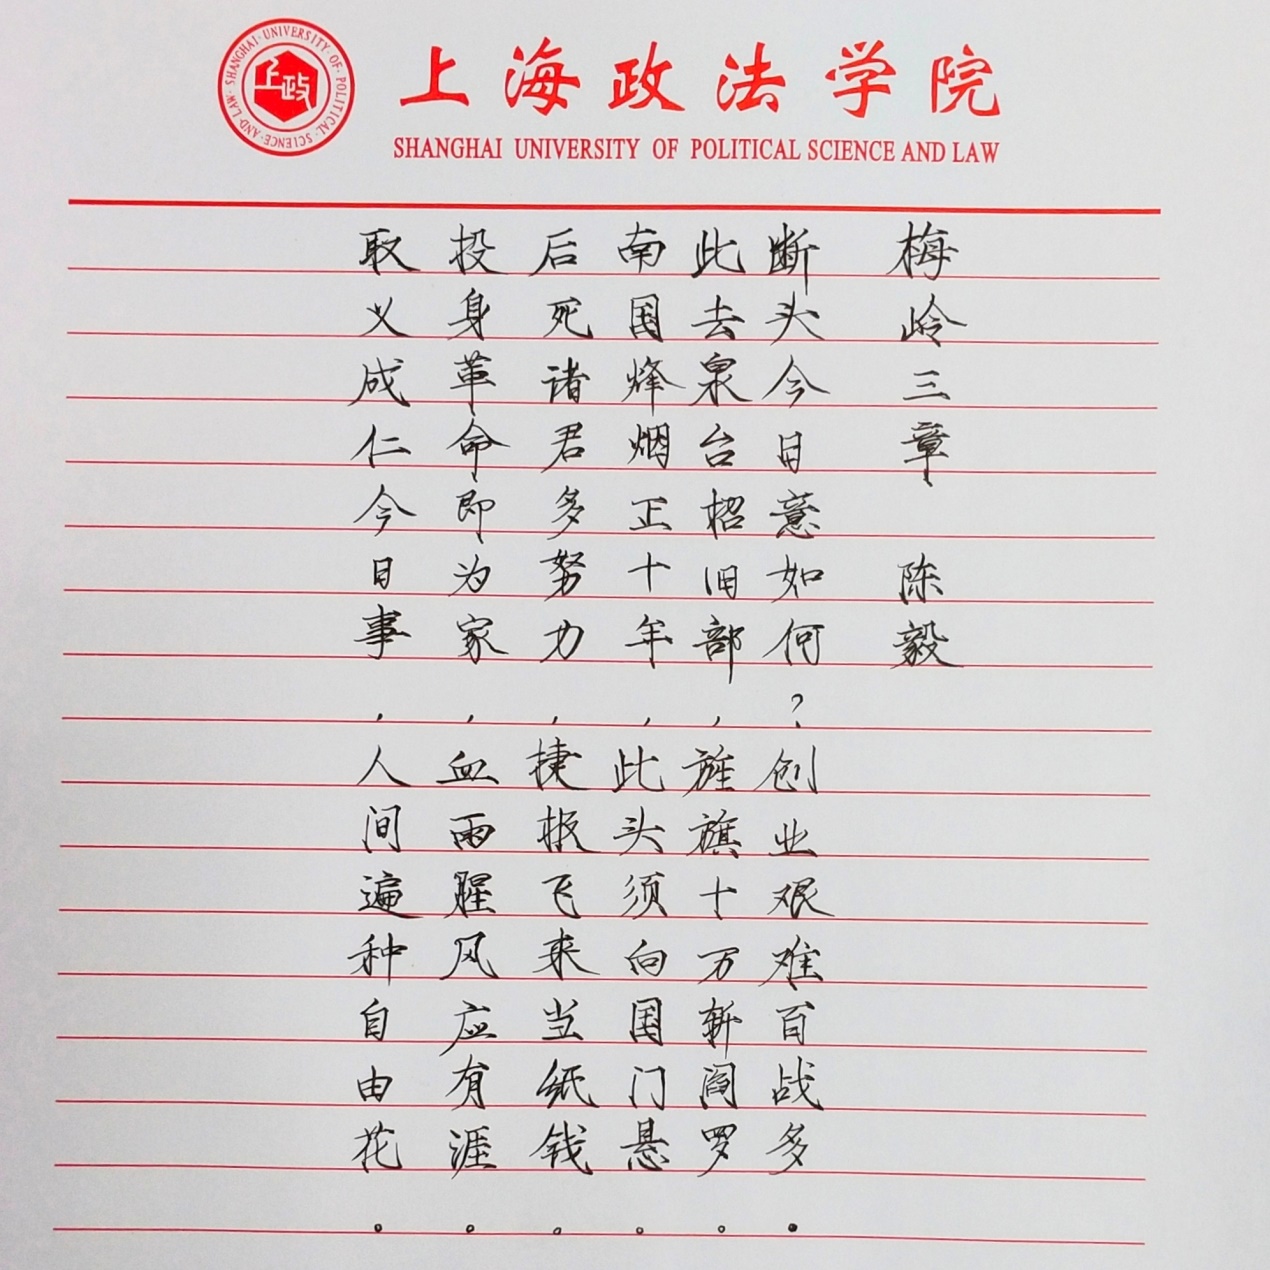 SHANGHAI·UNIVERSITY·OF·POLITICAL·SCIENCE·AND·LAW·
上政
上海政法学院
SHANGHAI UNIVERSITY OF POLITICAL SCIENCE AND LAW
梅岭三章 陈毅
断头今日意如何?创业艰难百战多。
此去泉台招旧部,旌旗十万斩阎罗。
南国烽烟正十年,此头须向国门悬。
后死诸君多努力,捷报飞来当纸钱。
投身革命即为家,血雨腥风应有涯。
取义成仁今日事,人间遍种自由花。